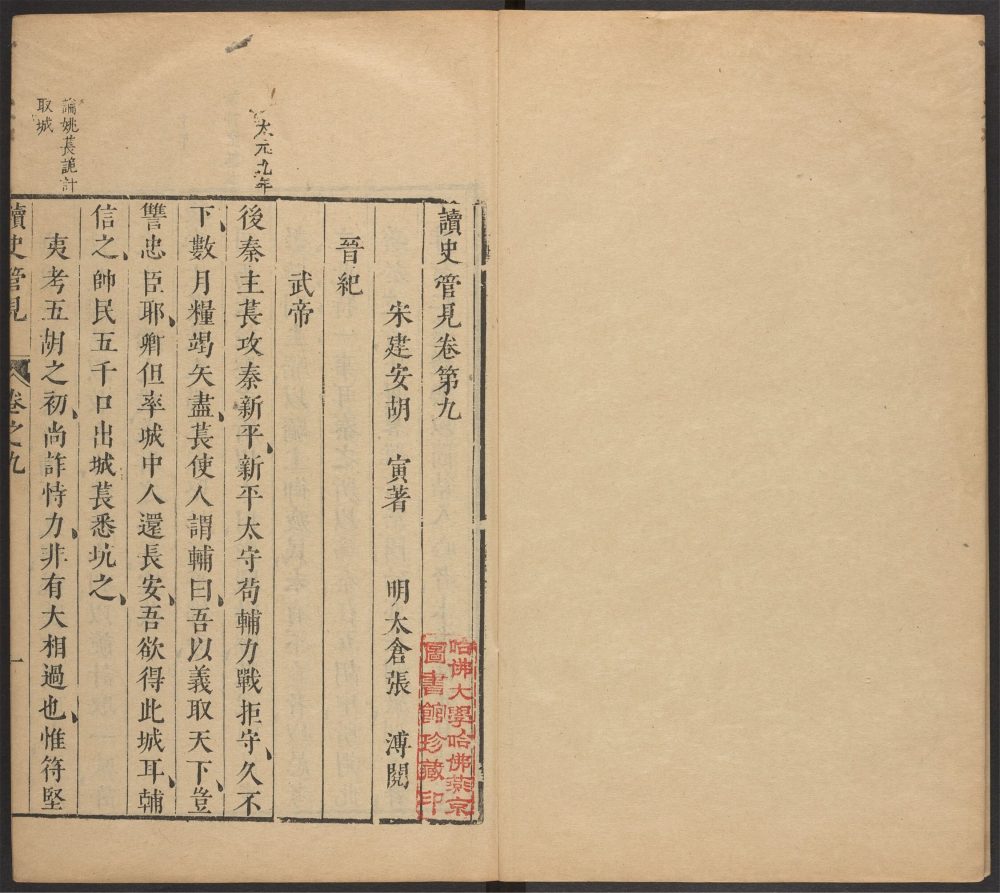 讀史管見卷第九
宋建安胡 寅著 明太倉張 溥閱
晉紀
武帝
太元九年
後秦主萇攻秦新平、新平太守苟輔力戰拒守、久不
下、數月糧竭矢盡、萇使人謂輔曰、吾以義取天下、豈
讐忠臣耶、卿但率城中人還長安、吾欲得此城耳、輔
信之、帥民五千口出城萇悉坑之、
論姚萇詭計
取城
夷考五胡之初、尚詐恃力、非有大相過也、惟苻堅
讀史管見 卷之九 一
哈佛大學哈佛燕京
圖書館珍藏印